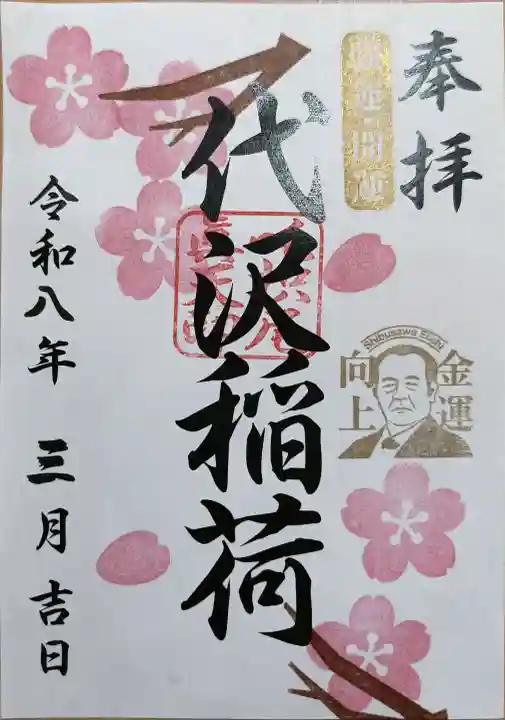 奉拝
開運
Shibusawa Eiichi
金運
向上
代沢稲荷
令和八年 三月 吉日